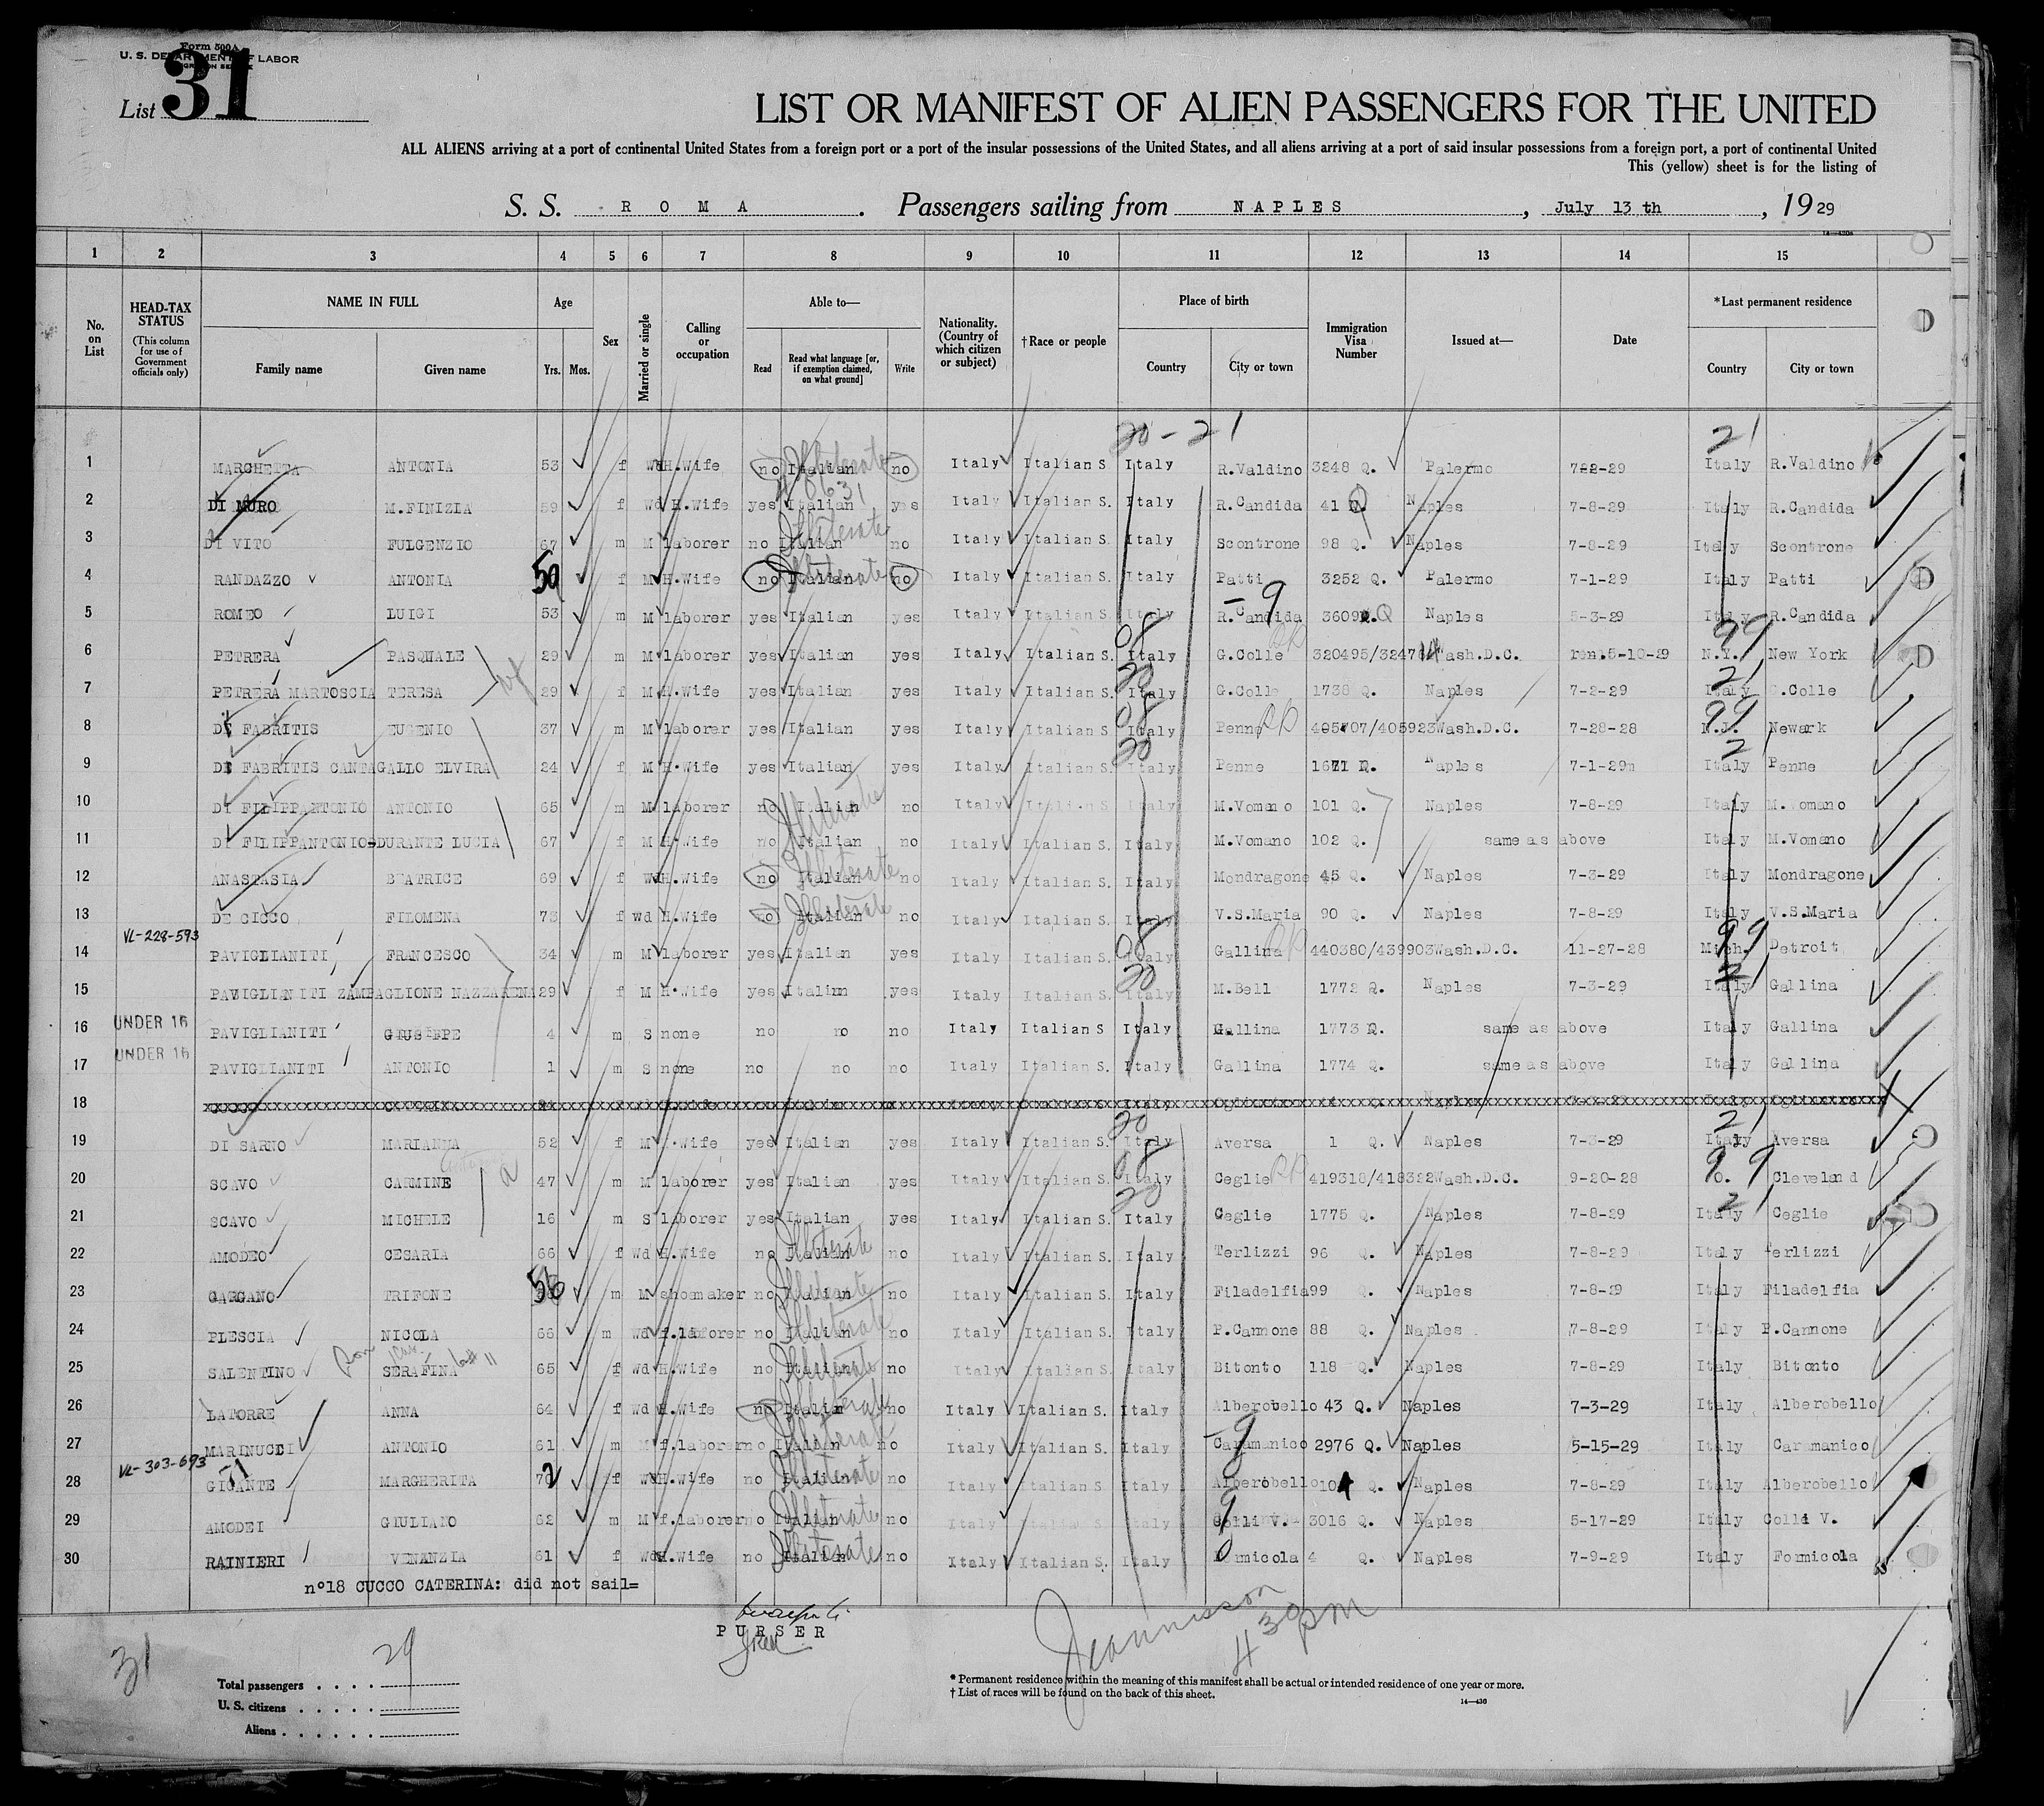 Form 500A
U. S. DEPARTMENT OF LABOR
List 31
LIST OR MANIFEST OF ALIEN PASSENGERS FOR THE UNITED
ALL ALIENS arriving at a port of continental United States from a foreign port or a port of the insular possessions of the United States, and all aliens arriving at a port of said insular possessions from a foreign port, a port of continental United
This (yellow) sheet is for the listing of
S. S. ROMA. Passengers sailing from NAPLES, July 13 th, 1929
1 2 3 4 5 6 7 8 9 10 11 12 13 14 15
No. on List
HEAD-TAX STATUS (This column for use of Government officials only)
NAME IN FULL Family name Given name
Age Yrs. Mos.
Sex
Married or single
Calling or occupation
Able to— Read Read what language [or, if exemption claimed, on what ground] Write
Nationality. (Country of which citizen or subject)
†Race or people
Place of birth Country City or town
Immigration Visa Number
Issued at—
Date
*Last permanent residence Country City or town
20-21 21
1 MARCHETTA ANTONIA 53 f Wd H.Wife no Italian no Italy Italian S Italy R.Valdino 3248 Q. Palermo 7-2-29 Italy R.Valdino
2 DI MURO M.FINIZIA 59 f Wd H.Wife yes Italian yes Italy Italian S. Italy R.Candida 41 Q Naples 7-8-29 Italy R.Candida
3 DI VITO FULGENZIO 67 m M laborer no Italian Illiterate no Italy Italian S. Italy Scontrone 98 Q. Naples 7-8-29 Italy Scontrone
4 RANDAZZO ANTONIA 50 f M H.Wife no Italian Illiterate no Italy Italian S. Italy Patti 3252 Q. Palermo 7-1-29 Italy Patti
5 ROMEO LUIGI 53 m M laborer yes Italian yes Italy Italian S. Italy R.Candida 3609 Q Naples 5-3-29 Italy R.Candida
6 PETRERA PASQUALE 29 m M laborer yes Italian yes Italy Italian S. Italy G.Colle 320495/32476 Wash.D.C. ren.5-10-29 N.Y. New York
7 PETRERA MARTOSCIA TERESA 29 f M H.Wife yes Italian yes Italy Italian S. Italy G.Colle 1738 Q. Naples 7-2-29 Italy G.Colle
8 DE FABRITIS EUGENIO 37 m M laborer yes Italian yes Italy Italian S Italy Penne 405707/405923 Wash.D.C. 7-28-28 N.J. Newark
9 DE FABRITIS CANTAGALLO ELVIRA 24 f M H.Wife yes Italian yes Italy Italian S. Italy Penne 1671 Q. Naples 7-1-29 Italy Penne
10 DI FILIPPANTONIO ANTONIO 65 m M laborer no Italian no Italy Italian S. Italy M.Vomano 101 Q. Naples 7-8-29 Italy M.Vomano
11 DI FILIPPANTONIO-DURANTE LUCIA 67 f M H.Wife no Italian no Italy Italian S. Italy M.Vomano 102 Q. same as above Italy M.Vomano
12 ANASTASIA BEATRICE 69 f Wd H.Wife no Italian Illiterate no Italy Italian S. Italy Mondragone 45 Q. Naples 7-3-29 Italy Mondragone
13 DE CICCO FILOMENA 73 f wd H.Wife no Italian Illiterate no Italy Italian S. Italy V.S.Maria 90 Q. Naples 7-8-29 Italy V.S.Maria
VL-228-593
14 PAVIGLIANITI FRANCESCO 34 m M laborer yes Italian yes Italy Italian S. Italy Gallina 440380/439903 Wash.D.C. 11-27-28 Mich. Detroit
15 PAVIGLIANITI ZAMPAGLIONE NAZZARENA 29 f M H.Wife yes Italian yes Italy Italian S. Italy M.Bell 1772 Q. Naples 7-3-29 Italy Gallina
16 UNDER 16 PAVIGLIANITI GIUSEPPE 4 m S none no no no Italy Italian S Italy Gallina 1773 Q. same as above Italy Gallina
17 UNDER 16 PAVIGLIANITI ANTONIO 1 m S none no no no Italy Italian S. Italy Gallina 1774 Q. same as above Italy Gallina
18
19 DI SARNO MARIANNA 52 f M H.Wife yes Italian yes Italy Italian S. Italy Aversa 1 Q. Naples 7-3-29 Italy Aversa
20 SCAVO CARMINE 47 m M laborer yes Italian yes Italy Italian S. Italy Ceglie 419318/418322 Wash.D.C. 9-20-28 O. Cleveland
21 SCAVO MICHELE 16 m S laborer yes Italian yes Italy Italian S. Italy Ceglie 1775 Q. Naples 7-8-29 Italy Ceglie
22 AMODEO CESARIA 66 f Wd H.Wife no Italian Illiterate no Italy Italian S. Italy Terlizzi 96 Q. Naples 7-8-29 Italy Terlizzi
23 GARGANO TRIFONE 56 m M shoemaker no Italian Illiterate no Italy Italian S. Italy Filadelfia 99 Q. Naples 7-8-29 Italy Filadelfia
24 PLESCIA NICOLA 66 m Wd f.laborer no Italian Illiterate no Italy Italian S. Italy P.Cannone 88 Q. Naples 7-8-29 Italy P.Cannone
25 SALENTINO SERAFINA 65 f Wd H.Wife no Italian Illiterate no Italy Italian S. Italy Bitonto 118 Q. Naples 7-8-29 Italy Bitonto
26 LATORRE ANNA 64 f Wd H.Wife no Italian Illiterate no Italy Italian S. Italy Alberobello 43 Q. Naples 7-3-29 Italy Alberobello
27 MARINUCCI ANTONIO 61 m M f.laborer no Italian Illiterate no Italy Italian S. Italy Caramanico 2976 Q. Naples 5-15-29 Italy Caramanico
VL-303-693
28 GIGANTE MARGHERITA 72 f Wd H.Wife no Italian Illiterate no Italy Italian S. Italy Alberobello 104 Q. Naples 7-8-29 Italy Alberobello
29 AMODEI GIULIANO 62 m M f.laborer no Italian Illiterate no Italy Italian S. Italy Colli V. 3016 Q. Naples 5-17-29 Italy Colli V.
30 RAINIERI VENANZIA 61 f Wd H.Wife no Italian Illiterate no Italy Italian S. Italy Formicola 4 Q. Naples 7-9-29 Italy Formicola
n°18 CUCCO CATERINA: did not sail=
PURSER
4 30 pm
31
29
Total passengers
U. S. citizens
Aliens
* Permanent residence within the meaning of this manifest shall be actual or intended residence of one year or more.
† List of races will be found on the back of this sheet.
14—430